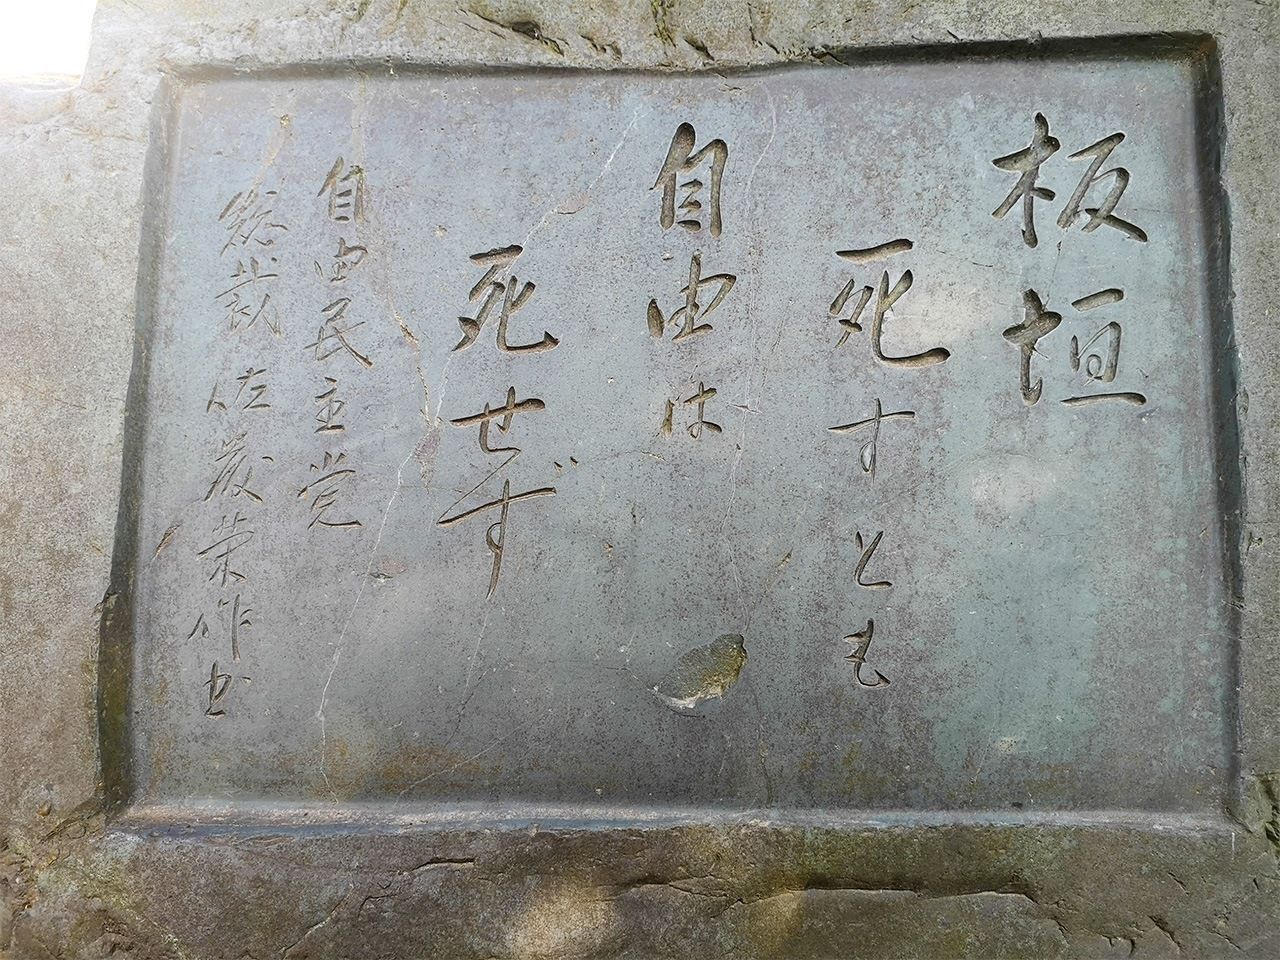 板垣
死すとも
自由は
死せず
自由民主党
総裁 佐藤栄作書